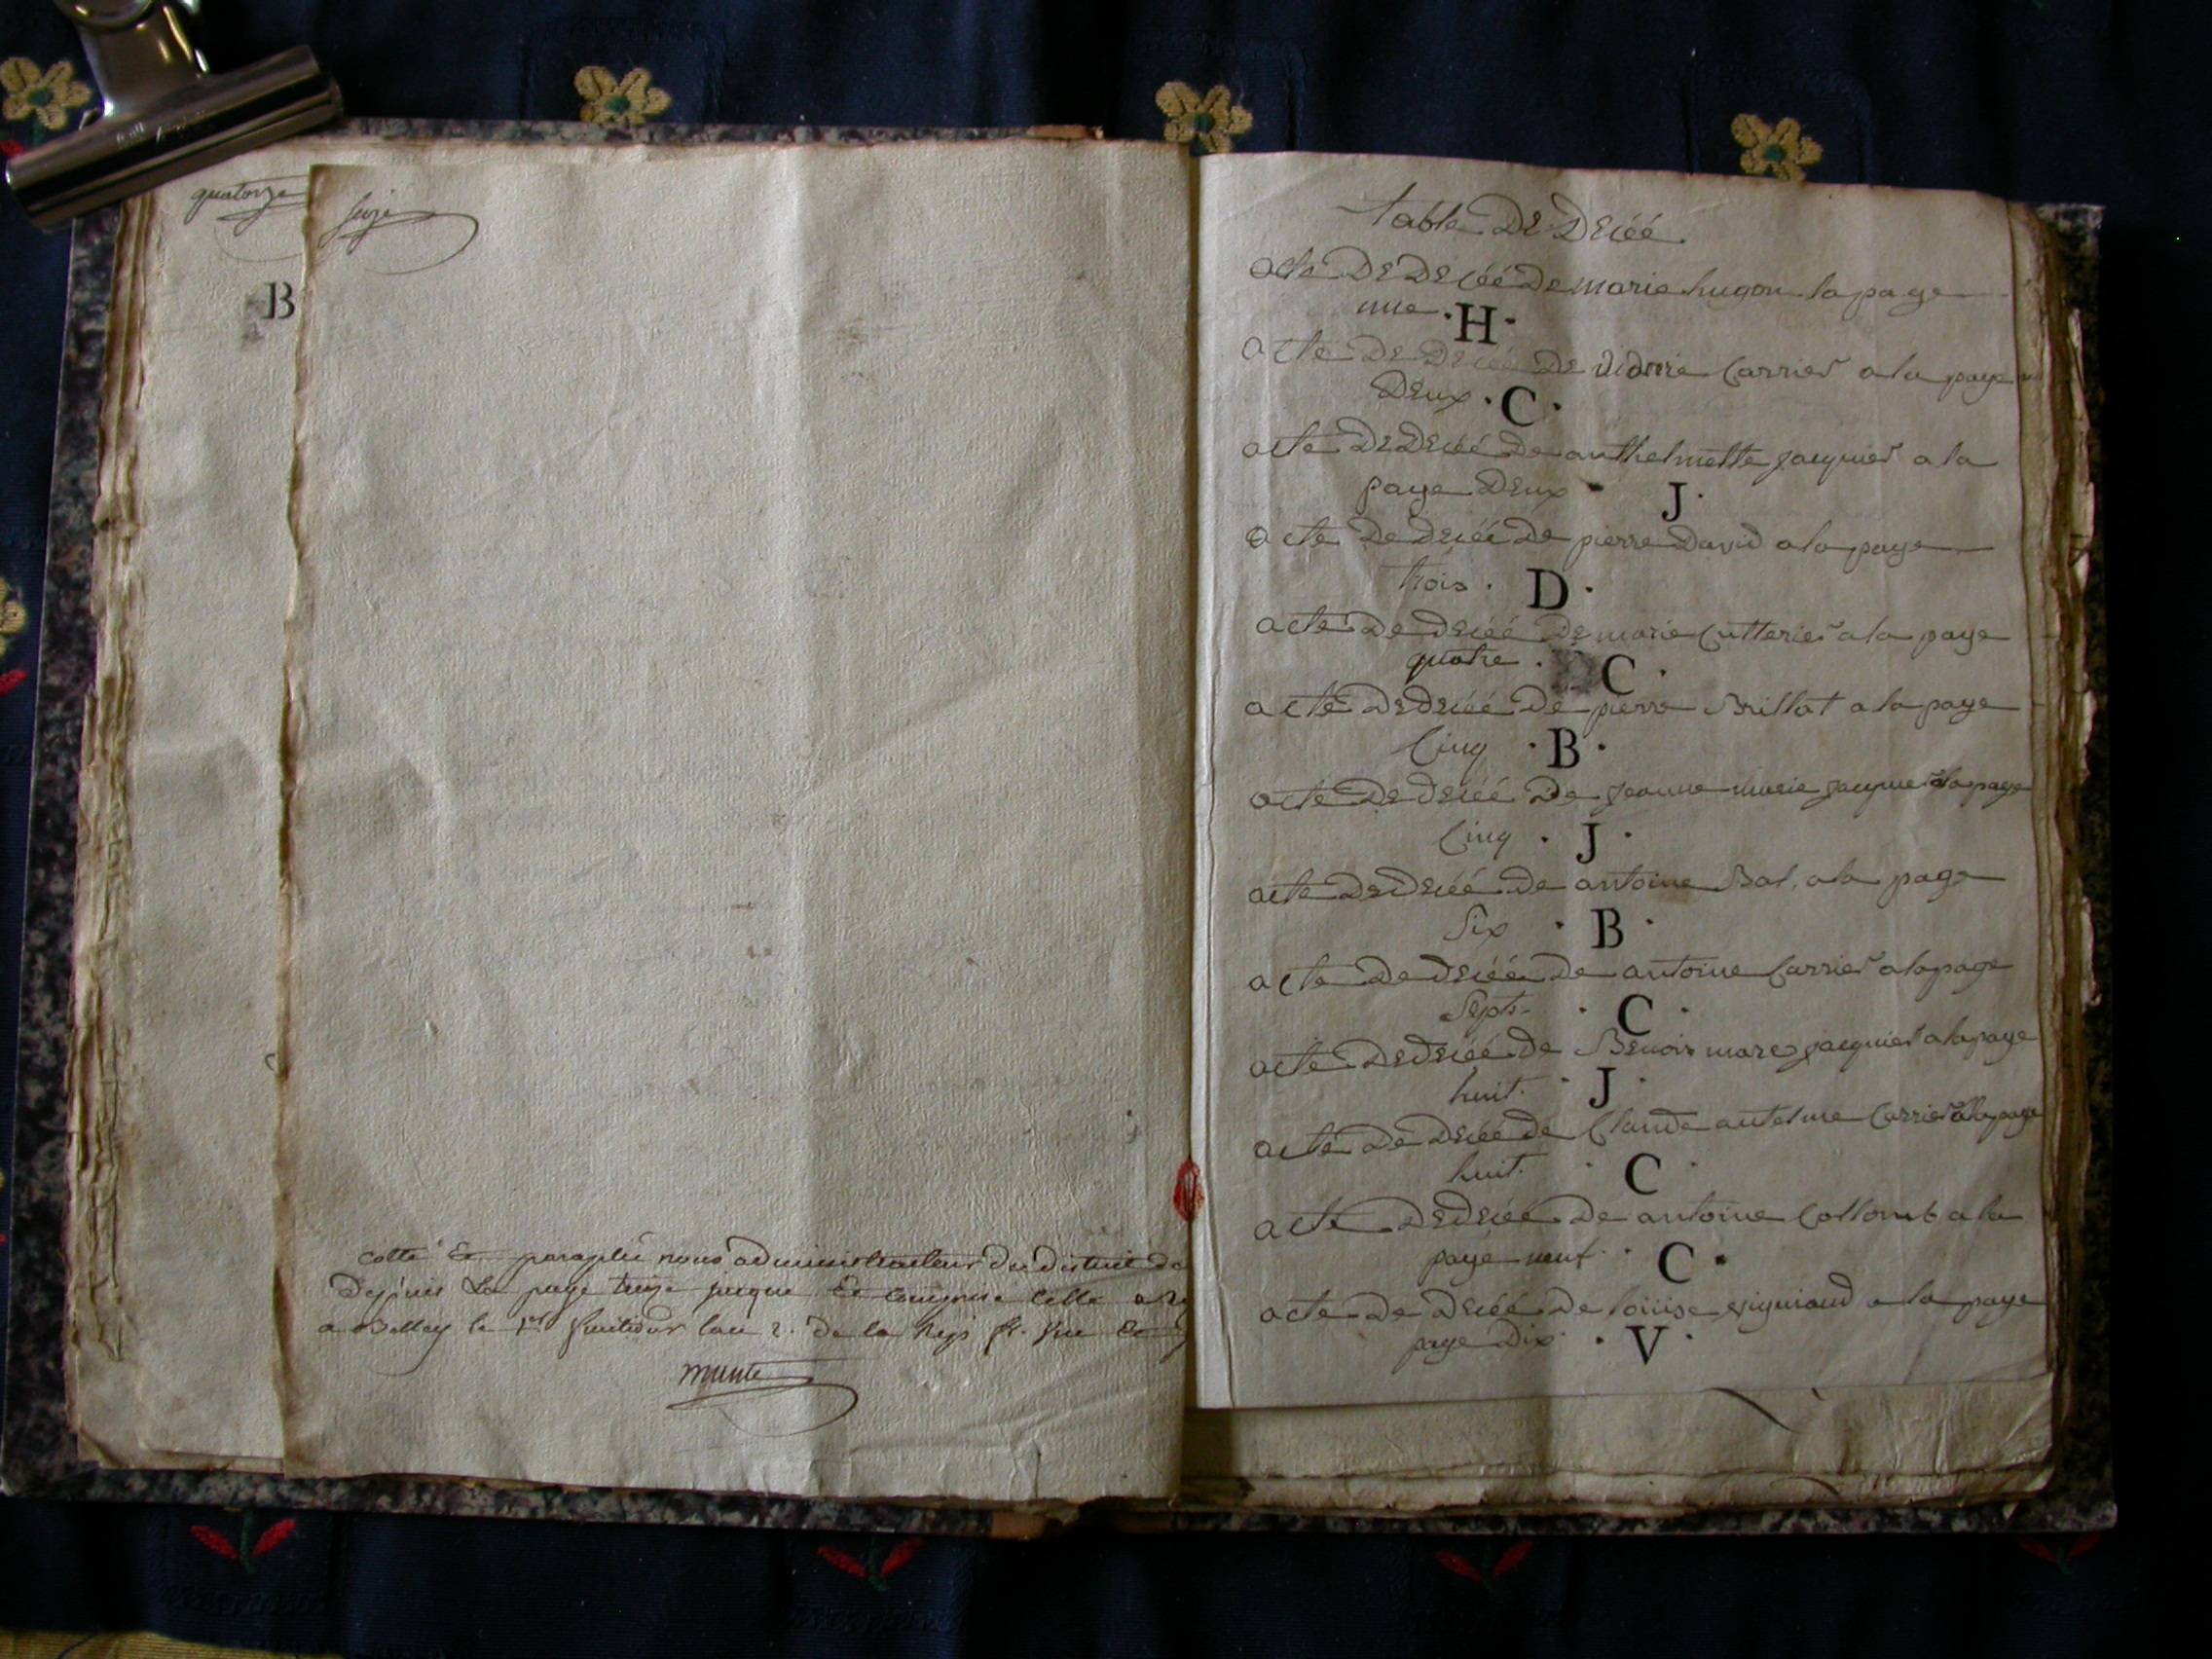 quatorze
seize
B
cotté & paraphé nous administrateur du district de
Depuis La page treize jusque & compris celle
a Belley le 1er fructidor l'an 2. de la Rep. fr. une &
table De Décéé
acte De Decéé De marie hugon la page
une . H .
acte De Decéé De Carrier a la page
Deux . C .
acte De Decéé De anthelmette jacquier a la
page Deux . J .
acte De decéé De pierre David a la page
trois . D .
acte De decéé De marie Cutterier a la page
quatre . C .
acte De decéé De pierre Brillat a la page
Cinq . B .
acte De decéé De jeanne marie jacquier a la page
Cinq . J .
acte De decéé De antoine Bal, a la page
Six . B .
acte De decéé De antoine Carrier a la page
Septs . C .
acte De decéé de Benoir marc jacquier a la page
huit . J .
acte De Decéé de Claude antelme Carrier a la page
huit . C .
acte De decéé De antoine Collomb a la
page neuf . C .
acte De Decéé De louise vigniaud a la page
page Dix . V .